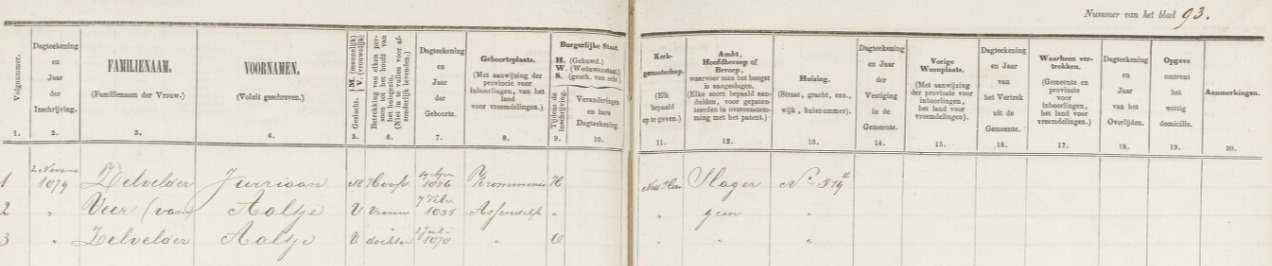 Nummer van het blad 93.
Volgnummer.
Dagteekening en Jaar der Inschrijving.
FAMILIENAAM.
(Familienaam der Vrouw.)
VOORNAMEN,
(Voluit geschreven.)
Geslacht. M. (mannelijk) V. (vrouwelijk)
Betrekking van elken persoon tot het hoofd van het huisgezin. (Niet in te vullen voor afzonderlijk levenden.)
Dagteekening en Jaar der Geboorte.
Geboorteplaats.
(Met aanwijzing der provincie voor inboorlingen, van het land voor vreemdelingen.)
Burgerlijke Staat.
H. (Gehuwd.)
W. (Weduwenstaat.)
S. (gesch. van echt.)
Tijdens de inschrijving.
Veranderingen en hare Dagteekening.
Kerkgenootschap.
(Elk bepaald op te geven.)
Ambt, Hoofdberoep of Beroep,
waarvoor men het hoogst is aangeslagen.
(Elke soort bepaald aanduiden, voor gepatenteerden in overeenstemming met het patent.)
Huizing.
(Straat, gracht, enz., wijk, huisnummer).
Dagteekening en Jaar der Vestiging in de Gemeente.
Vorige Woonplaats.
(Met aanwijzing der provincie voor inboorlingen, het land voor vreemdelingen).
Dagteekening en Jaar van het Vertrek uit de Gemeente.
Waarheen vertrokken.
(Gemeente en provincie voor inboorlingen, het land voor vreemdelingen).
Dagteekening en Jaar van het Overlijden.
Opgave omtrent het wettig domicilie.
Aanmerkingen.
1. 2. 3. 4. 5. 6. 7. 8. 9. 10. 11. 12. 13. 14. 15. 16. 17. 18. 19. 20.
1 1879 Zelvelder Jurriaan M Hoofd 1856 Krommenie H Slager No 519
2 " Veer (van) Aaltje V vrouw 7 1855 Assendelft " " geen "
3 " Zelvelder Aaltje V dochter 1878 " " " "